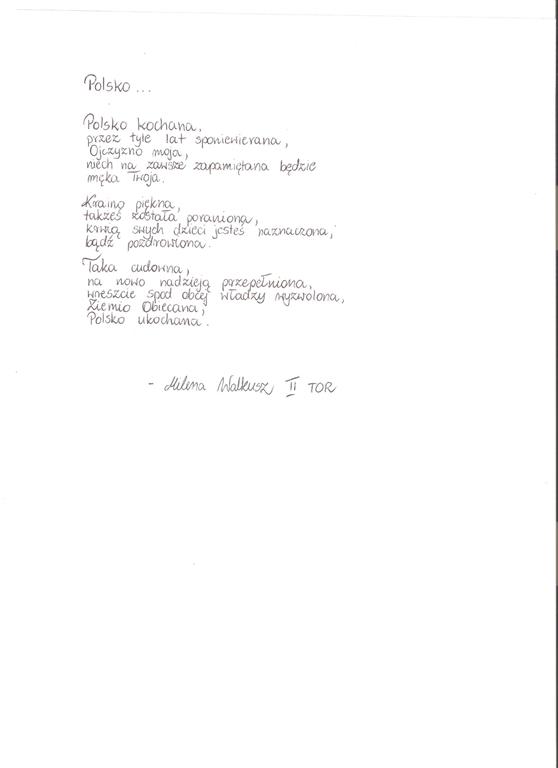 Polsko ...
Polsko kochana,
przez tyle lat sponiewierana,
Ojczyzno moja,
niech na zawsze zapamiętana będzie
męka Twoja.
Kraino piękna,
takżeś została poraniona,
krwią swych dzieci jesteś naznaczona,
bądź pozdrowiona.
Taka cudowna,
na nowo nadzieją przepełniona,
wreszcie spod obcej władzy wyzwolona,
Ziemio Obiecana,
Polsko ukochana.
- Milena Walkusz II TOR